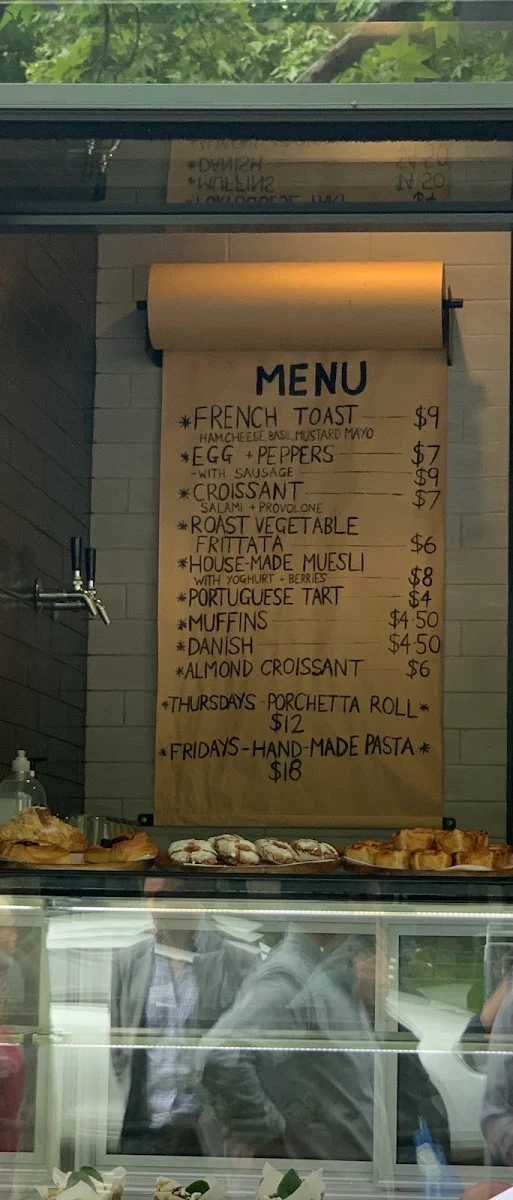 MENU
*FRENCH TOAST $9
HAM, CHEESE, BASIL, MUSTARD MAYO
*EGG + PEPPERS $7
-WITH SAUSAGE $9
*CROISSANT $7
SALAMI + PROVOLONE
*ROAST VEGETABLE
FRITTATA $6
*HOUSE-MADE MUESLI
WITH YOGHURT + BERRIES $8
*PORTUGUESE TART $4
*MUFFINS $4.50
*DANISH $4.50
*ALMOND CROISSANT $6
*THURSDAYS-PORCHETTA ROLL*
$12
*FRIDAYS-HAND-MADE PASTA*
$18